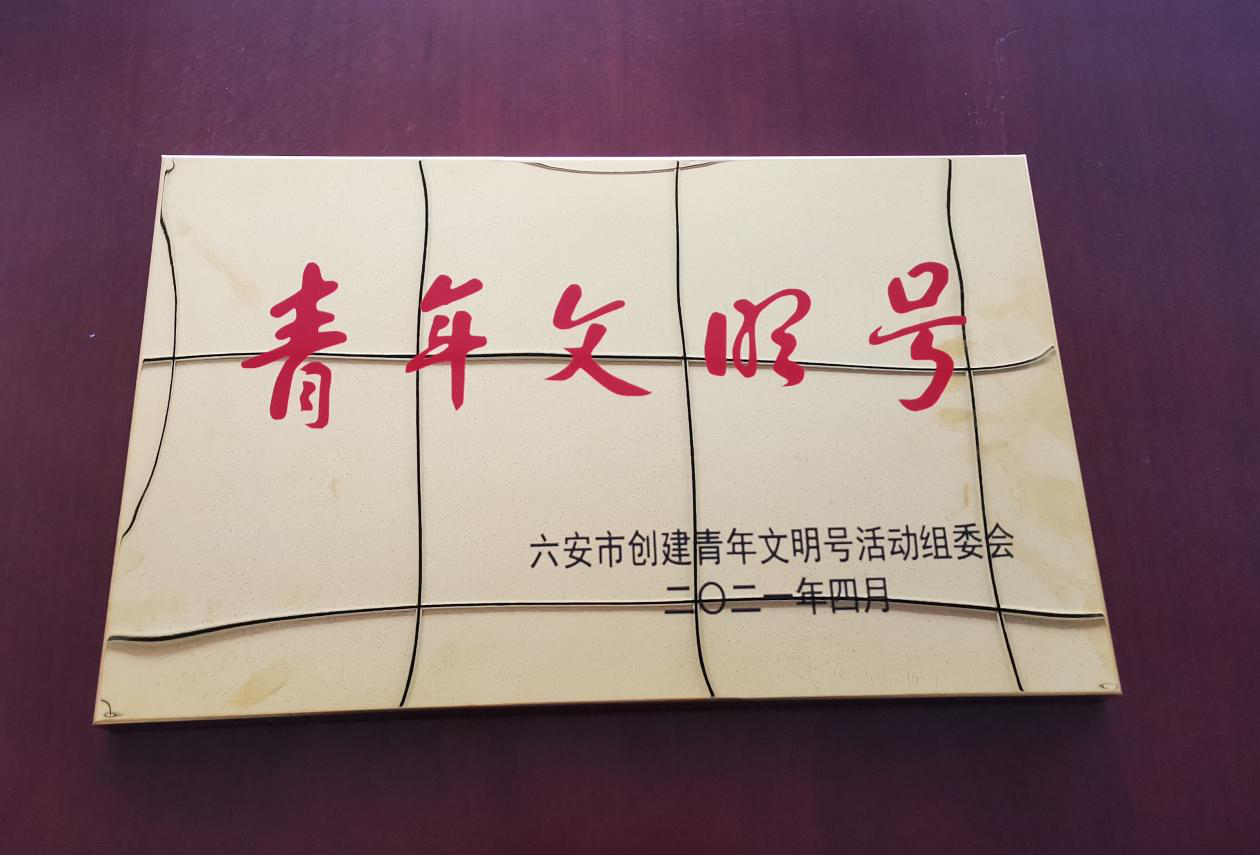 青年文明号
六安市创建青年文明号活动组委会
二〇二一年四月